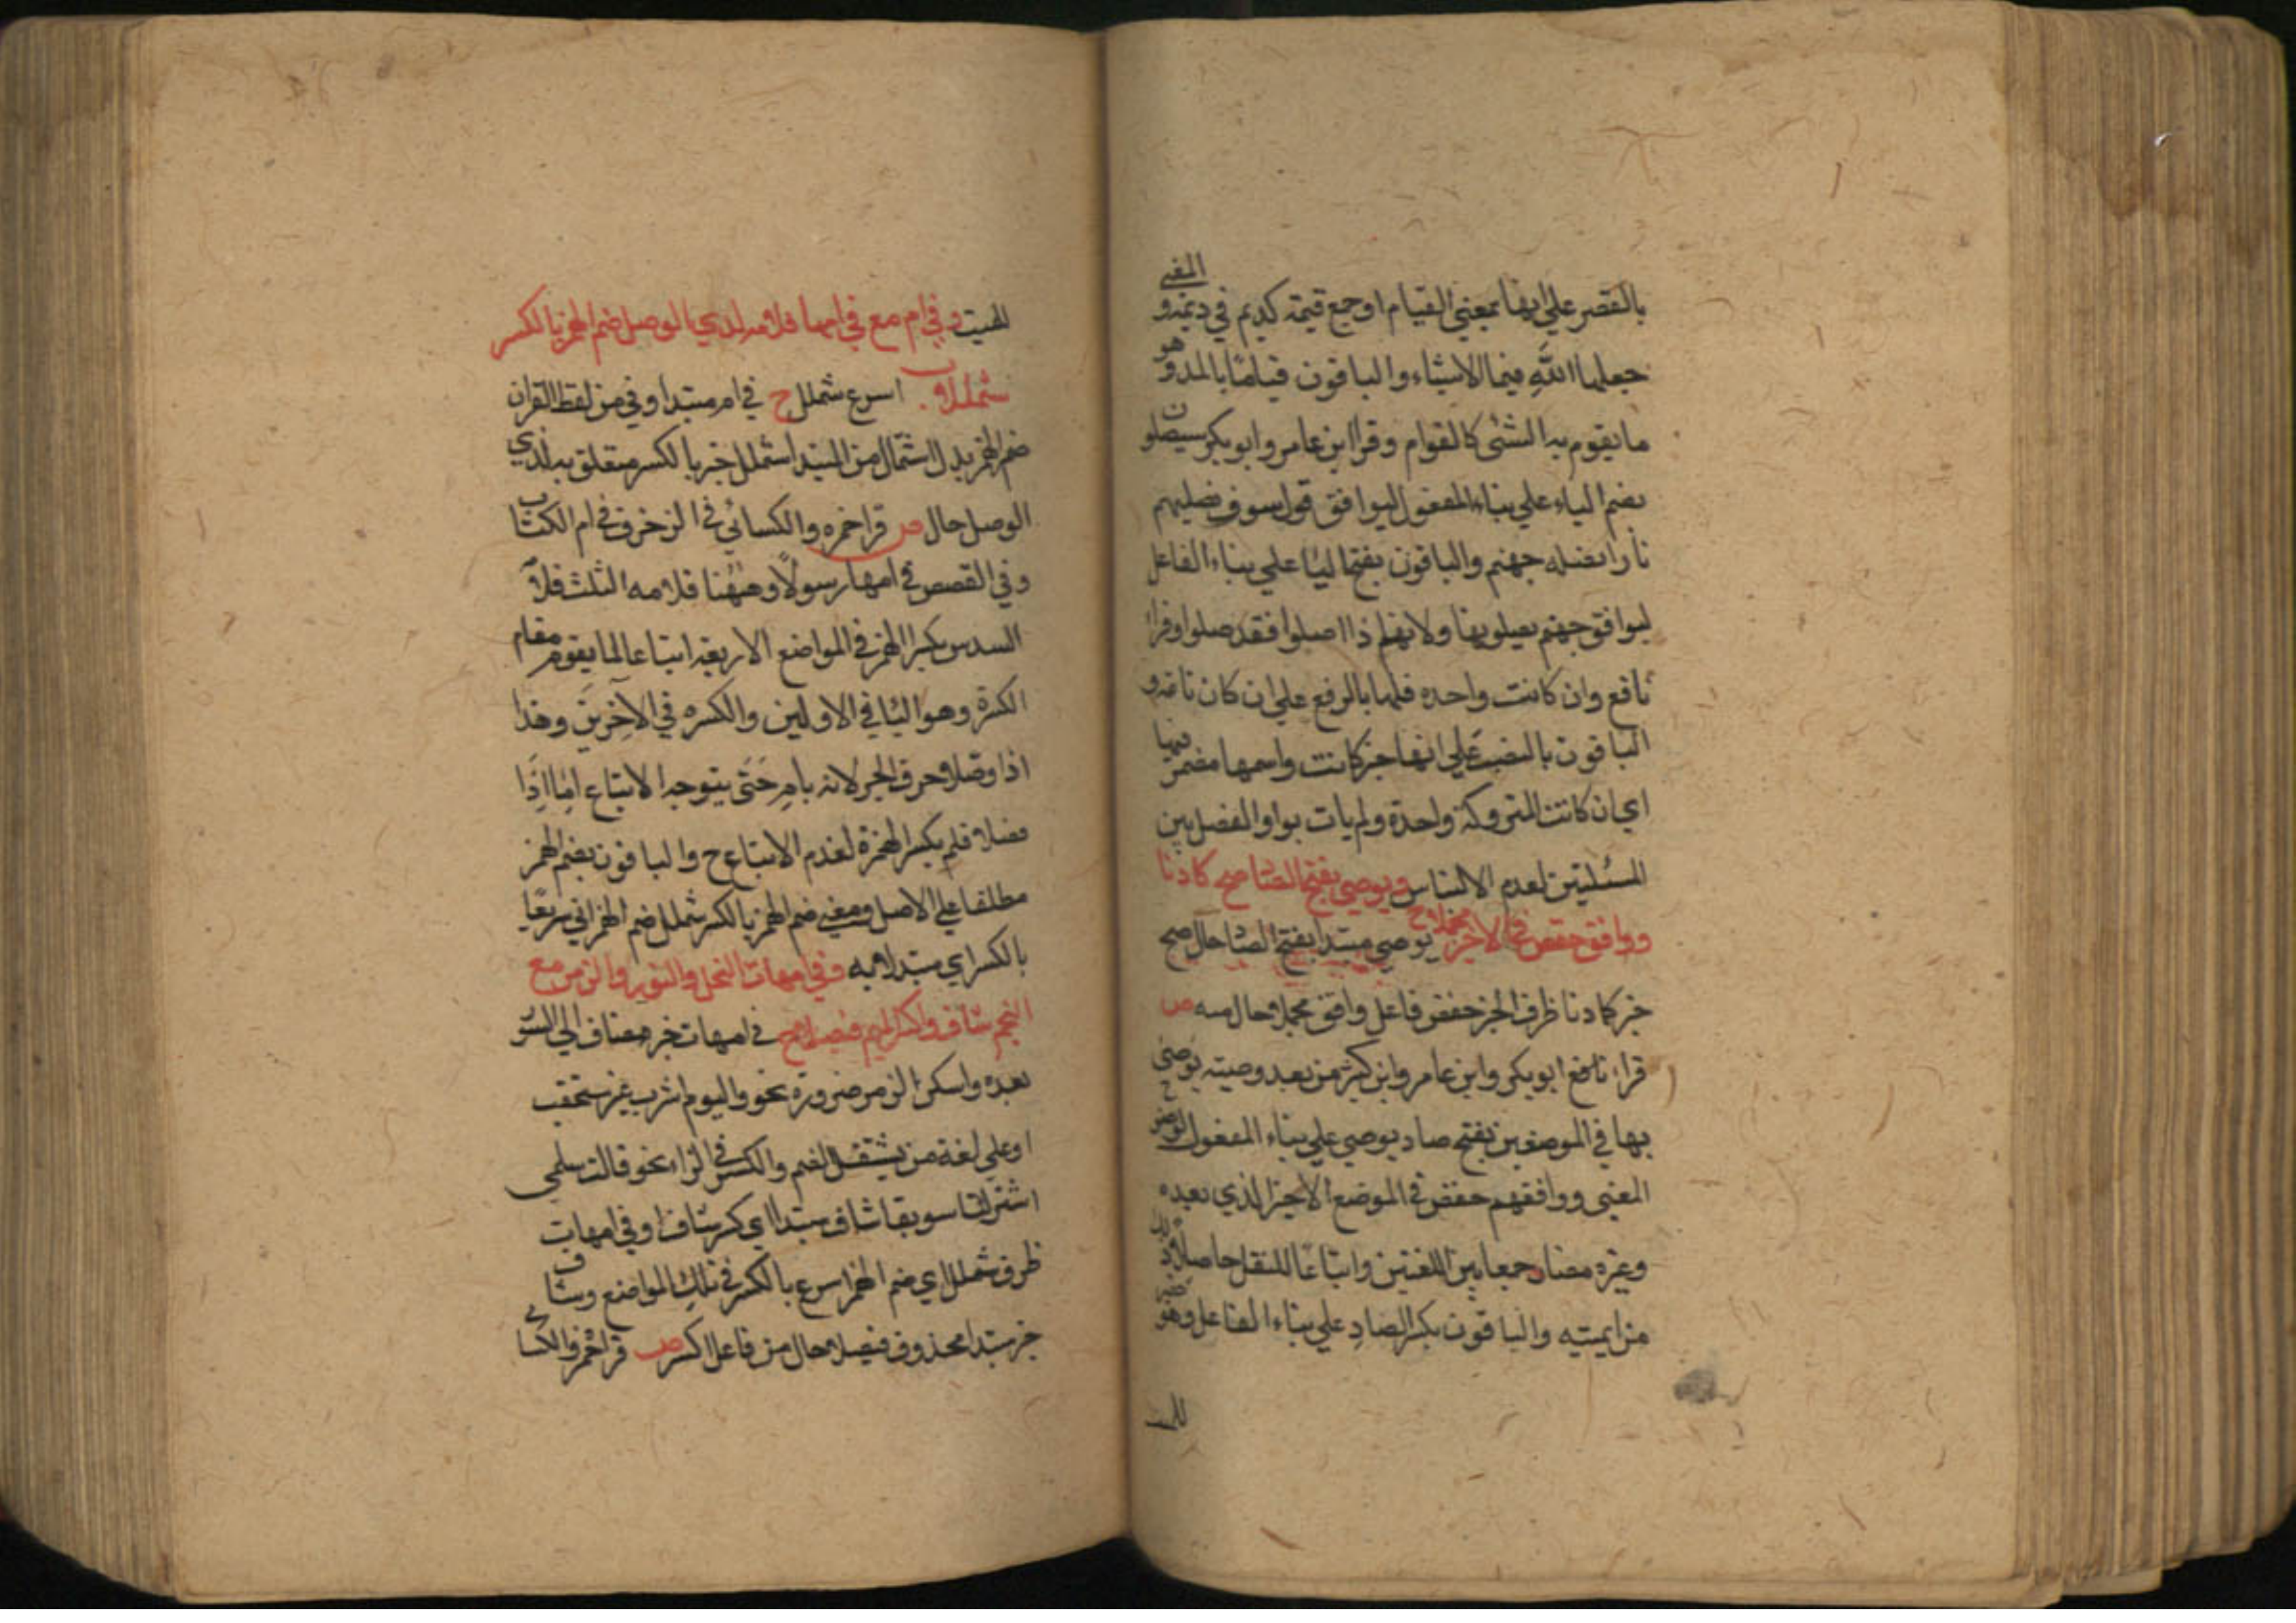 بالقصر علي انها بمعني القيام او جمع قيمة كديم في ديمة و المعني
جعلها الله قيما لاشياء والباقون قياما بالمد و هو
ما يقوم به الشئ كالقوام وقرا ابن عامر وابو بكر سيصلون
بضم الياء علي بناء المفعول ليوافق قوله سوف نصليهم
نارا يصله جهنم والباقون بفتح اليا علي بناء الفاعل
ليوافق جهنم يصلونها ولا يصلها اصلوا فقد صلوا وقرا
نافع وان كانت واحده فلها بالرفع علي ان كان تامة و
الباقون بالنصب علي انها خبر كانت واسمها مضمر فيها
اي ان كانت المتروكة واحدة ولم يات بواو الفصل بين
المسئلتين لعدم الالتباس ويوصي بفتح الصاد صح كما دنا
ووافق حفص في الاخير مجملا ح يوصي مبتدا بفتح الصاد حال صح
خبر كما دنا ظرف الخبر حفص فاعل وافق مجملا حال منه ص
قراء نافع ابو بكر وابن عامر وابن كثير من بعد وصية يوصي
بها في الموضعين بفتح صاد يوصي علي بناء المفعول
المعني ووافقهم حفص في الموضع الاخير الذي بعده
وغيره مضار جمعا بين اللغتين واتباعا للنقل حاصلا
من ايمته والباقون بكسر الصاد علي بناء الفاعل وهو
للميت
للميت وفي ام مع في امها فلامه لدي الوصل ضم الهمز بالكسر
شمللا ب اسرع شملل ح في ام مبتدا وفي من لفظ القران
ضم الهمز بدل اشتمال من المبتدا شملل خبر بالكسر متعلق به لدي
الوصل حال ص قرا حمزه والكسائي في الزخرف في ام الكتاب
وفي القصص في امها رسولا وههنا فلامه الثلث فلامه
السدس بكسر الهمز في المواضع الاربعة اتباعا لما يقوم مقام
الكسرة وهو اليا في الاولين والكسره في الاخرين وهذا
اذا وصلا وحرف الجر لانه بامر حتى يتوجه الاتباع اما اذا
فصلا فلم يكسر الهمزة لعدم الاتباع ح والباقون بضم الهمز
مطلقا علي الاصل ومعني ضم الهمز بالكسر شملل ضم الهمز اتي سريعا
بالكسر اي مبتدا به وفي امهات النحل والنور والزمر مع
النجم شاف واكسر الميم فيصلا ح في امهات خبر مضاف الي السور
بعده واسكن الزمر ضرورة نحو واليوم اشرب غير مستحقب
او علي لغة من يستثقل الضم والكسر في الراء نحو قالت سلمي
اشتر لنا سويقا شاف مبتدا اي كسر شاف او في امهات
ظرف شملل اي ضم الهمز اسرع بالكسر في تلك المواضع وشاف
خبر مبتدا محذوف فيصلا حال من فاعل اكسر ص قرا حمزه والكسائي